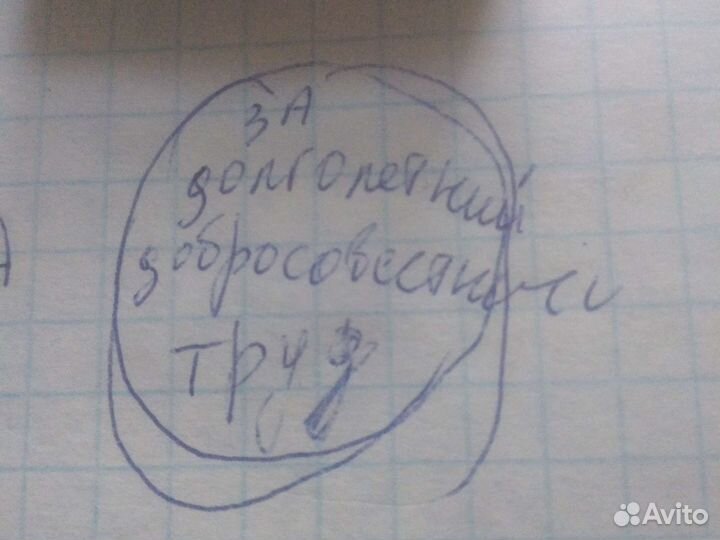 ЗА
долголетний
добросовестный
труд
Avito